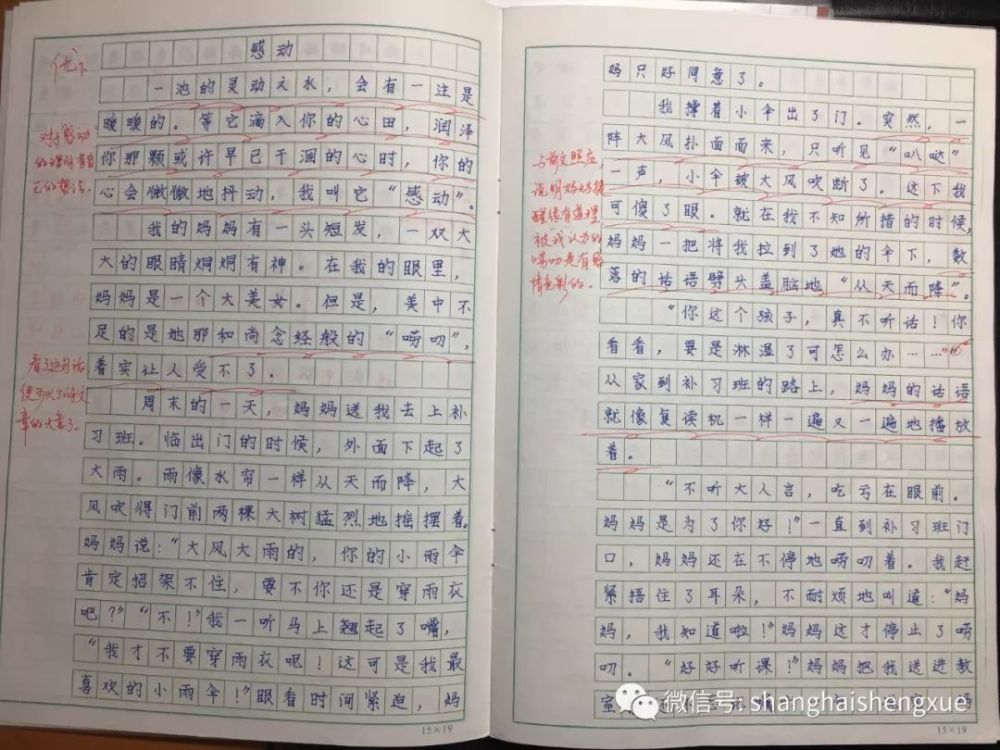 感动
一池的灵动之水，会有一注是
暖暖的。等它滴入你的心田，润泽
你那颗或许早已干涸的心时，你的
心会微微地抖动，我叫它“感动”。
我的妈妈有一头短发，一双大
大的眼睛炯炯有神。在我的眼里，
妈妈是一个大美女。但是，美中不
足的是她那和尚念经般的“唠叨”，
着实让人受不了。
周末的一天，妈妈送我去上补
习班。临出门的时候，外面下起了
大雨。雨像水帘一样从天而降，大
风吹得门前两棵大树猛烈地摇摆着。
妈妈说：“大风大雨的，你的小雨伞
肯定招架不住，要不你还是穿雨衣
吧？”“不！”我一听马上翘起了嘴，
“我才不要穿雨衣呢！这可是我最
喜欢的小雨伞！”眼看时间紧迫，妈
15×19
优↓
对于感动
的理解有自
己的想法。
看了这句话
便可以了解文
章的大意了。
妈只好同意了。
我撑着小伞出了门。突然，一
阵大风扑面而来，只听见“叭哒”
一声，小伞被大风吹断了。这下我
可傻了眼。就在我不知所措的时候，
妈妈一把将我拉到了她的伞下，数
落的话语劈头盖脑地“从天而降”。
“你这个孩子，真不听话！你
看看，要是淋湿了可怎么办……”
从家到补习班的路上，妈妈的话语
就像复读机一样一遍又一遍地播放
着。
“不听大人言，吃亏在眼前。
妈妈是为了你好！”一直到补习班门
口，妈妈还在不停地唠叨着。我赶
紧捂住了耳朵，不耐烦地叫道：“妈
妈，我知道啦！”妈妈这才停止了唠
叨。“好好听课！”妈妈把我送进教
室
妈
15×19
与前文照应，
说明妈妈的提
醒很有道理
被我认为的
唠叨是有感
情色彩的。
微信号: shanghaishengxue